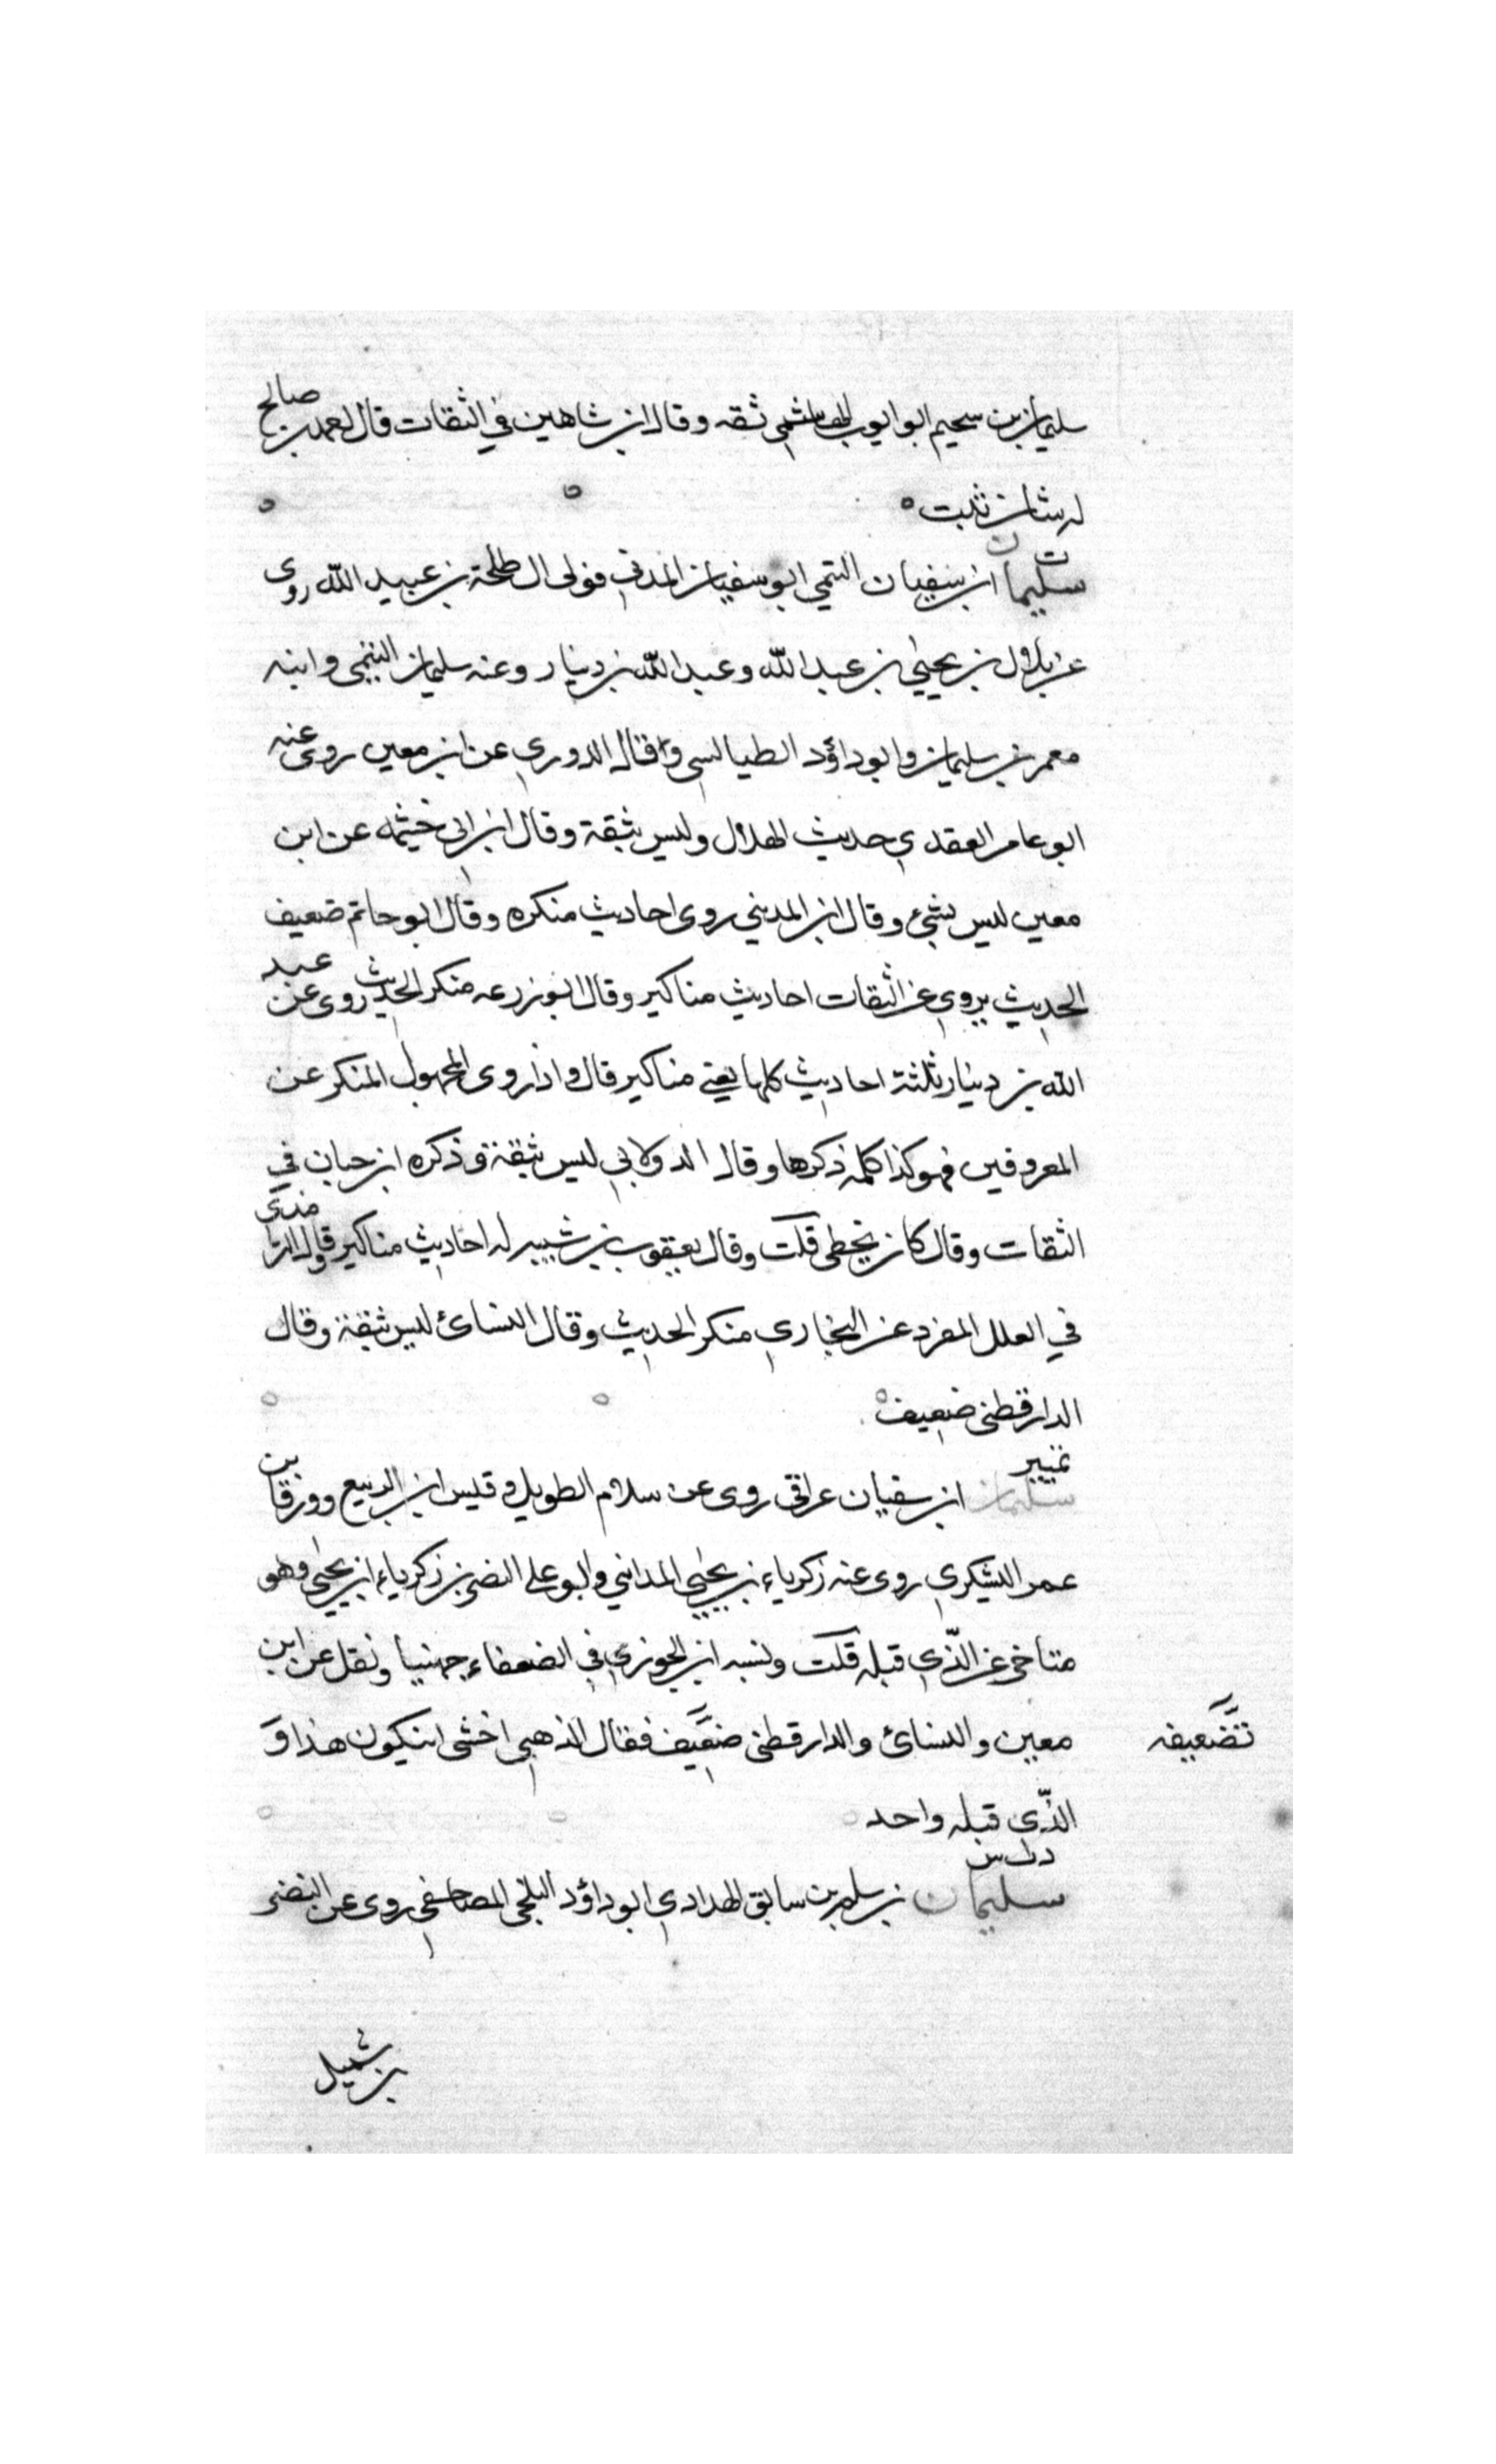 سليمان بن سحيم ابو ايوب الهاشمي ثقه وقال ابن شاهين في الثقات قال احمد بن صالح
له شان ثبت
ت
سليمان ابن سفيان التيمي ابو سفيان المدني مولى ال طلحة بن عبيد الله روى
عن بلال بن يحيى بن عبد الله وعبد الله بن دينار وعنه سليمان التيمي وابنه
معمر بن سليمان وابو داؤد الطيالسي قال الدوري عن ابن معين روى عنه
ابو عامر العقدي حديث الهلال وليس بثقة وقال ابن ابى خيثمه عن ابن
معين ليس بشئ وقال ابن المديني روى احاديث منكره وقال ابو حاتم ضعيف
الحديث يروي عن الثقات احاديث مناكير وقال ابو زرعه منكر الحديث روى عن عبد
الله بن دينار ثلثة احاديث كلها يعني مناكير قال واذا روى المجهول المنكر عن
المعروفين فهو كذا كلمة ذكرها وقال الدولابي ليس بثقة وذكره ابن حبان في
الثقات وقال كان يخطى قلت وقال يعقوب بن شيبه له احاديث مناكير وقال الترمذى
في العلل المفرد عن البخاري منكر الحديث وقال النسائ ليس بثقة وقال
الدارقطنى ضعيف
تمييز
سليمان ابن سفيان عراقى روى عن سلام الطويل وقيس ابن الربيع وورقا بن
عمر اليشكري روى عنه زكرياء بن يحيى المدايني وابو على النضر بن زكرياء ابن يحيى وهو
متاخر عن الذي قبله قلت ونسبه ابن الجوزي في الضعفاء جهنيا ونقل عن ابن
معين والنسائ والدارقطنى ضعيف فقال الذهبي اخشى ان يكون هذا و
تضعيفه
الذي قبله واحد
د ت س
سليمان بن سلم بن سابق الهدادي ابو داؤد البلخى المصاحفي روى عن النضر
بن شميل